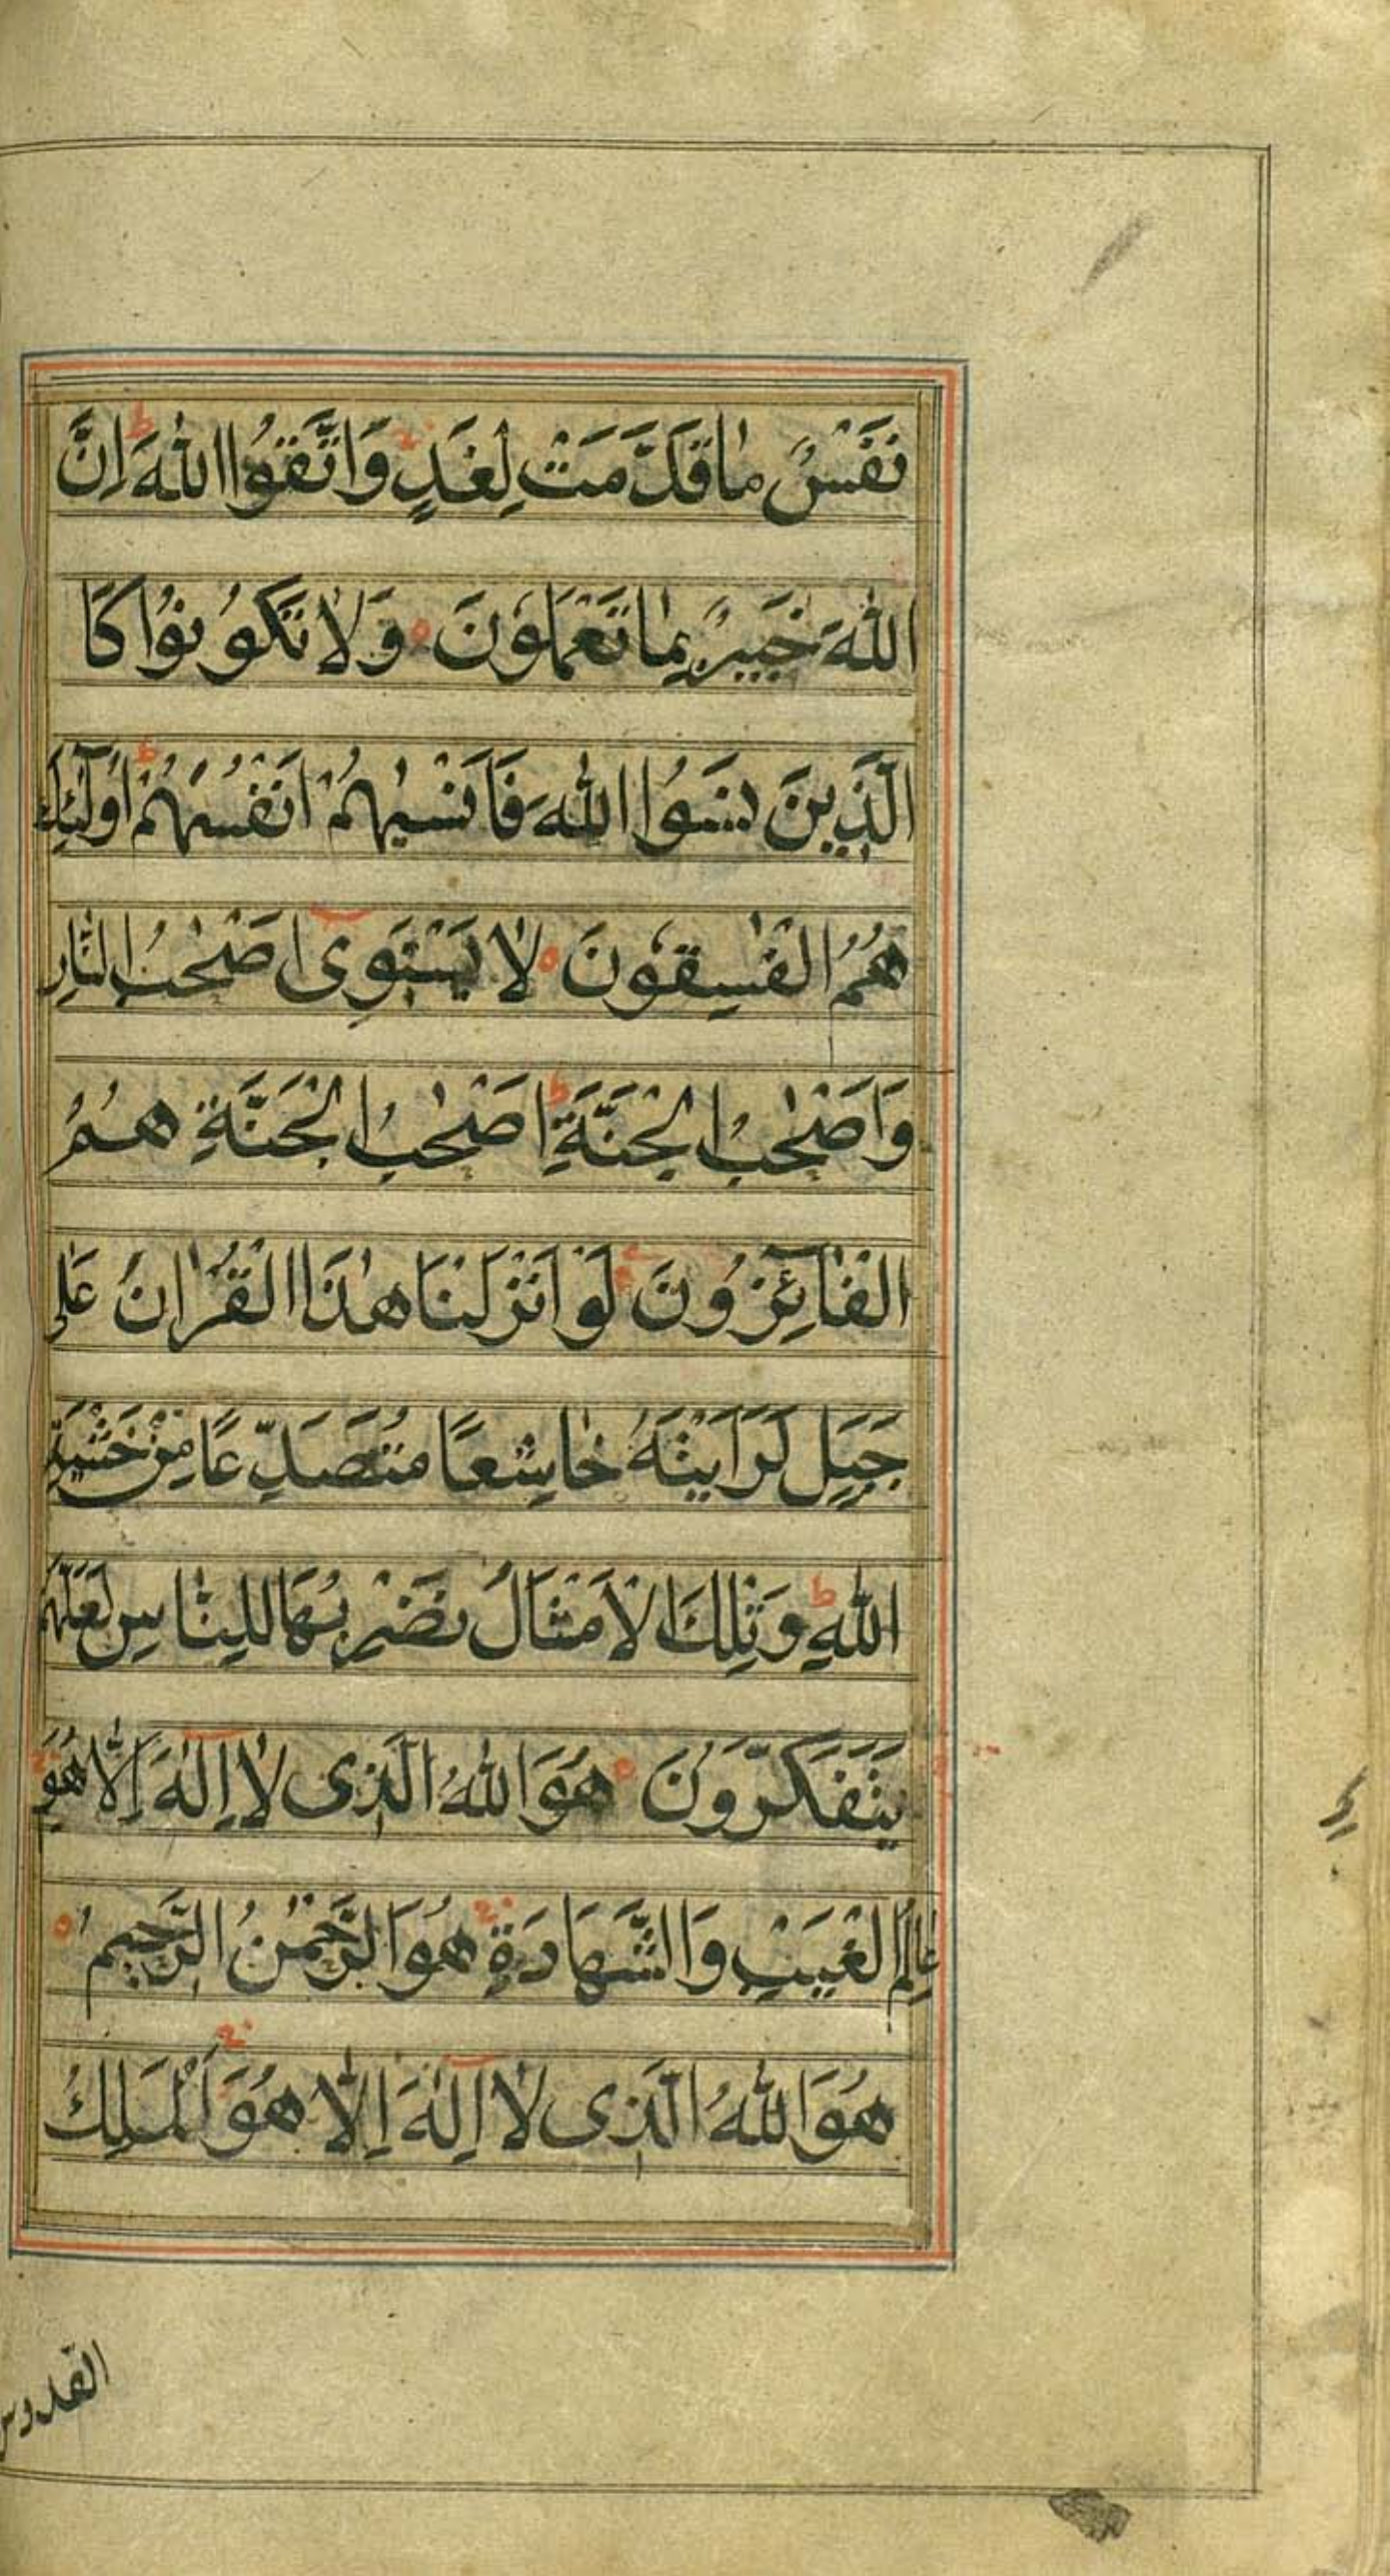 نَفْسٌ مٰا قَدَّمَتْ لِغَدٍ وَاتَّقُوا اللّٰهَ ط اِنَّ
اللّٰهَ خَبِيرٌ بِمٰا تَعْمَلُونَ ه وَلٰا تَكُونُوا كَا
الَّذِينَ نَسُوا اللّٰهَ فَاَنْسٰيهُمْ اَنْفُسَهُمْ ط اُولٰٓئِكَ
هُمُ الْفٰسِقُونَ ه لٰا يَسْتَوِىٓ اَصْحٰبُ النّٰارِ
وَاَصْحٰبُ الْجَنَّةِ ط اَصْحٰبُ الْجَنَّةِ هُمُ
الْفٰٓائِزُونَ لَوْ اَنْزَلْنَا هٰذَا الْقُرْاٰنَ عَلٰى
جَبَلٍ لَرَاَيْتَهُ خٰاشِعًا مُتَصَدِّعًا مِنْ خَشْيَةِ
اللّٰهِ ط وَتِلْكَ الْاَمْثَالُ نَضْرِبُهَا لِلنّٰاسِ لَعَلَّهُمْ
يَتَفَكَّرُونَ ه هُوَ اللّٰهُ الَّذِى لٰٓا اِلٰهَ اِلّٰا هُوَ
عٰالِمُ الْغَيْبِ وَالشَّهَادَةِ هُوَ الرَّحْمٰنُ الرَّحِيمُ ه
هُوَ اللّٰهُ الَّذِى لٰٓا اِلٰهَ اِلّٰا هُوَ اَلْمَلِكُ
القدوس